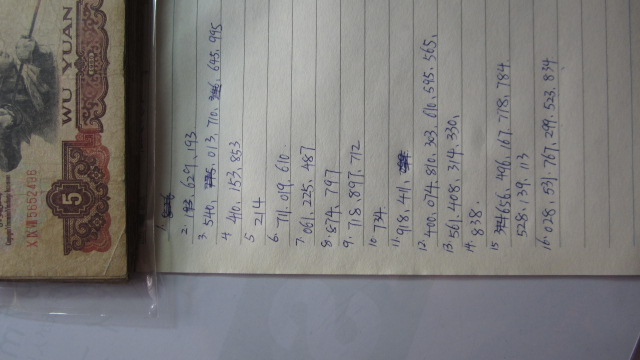 WU YUAN
5
1.
2. 193, 629, 193
3. 540, 013, 710, 645, 995
4 410, 153, 853
5 214
6. 711, 019, 610
7. 061, 225, 487
8. 874, 797
9. 718, 897, 712
10 734
11. 918, 411,
12. 400, 074, 810, 303, 610, 595, 565,
13. 561, 408, 314, 330,
14. 838.
15 656, 496, 167, 718, 784
528, 139, 113
16. 028, 531, 767, 299, 523, 834